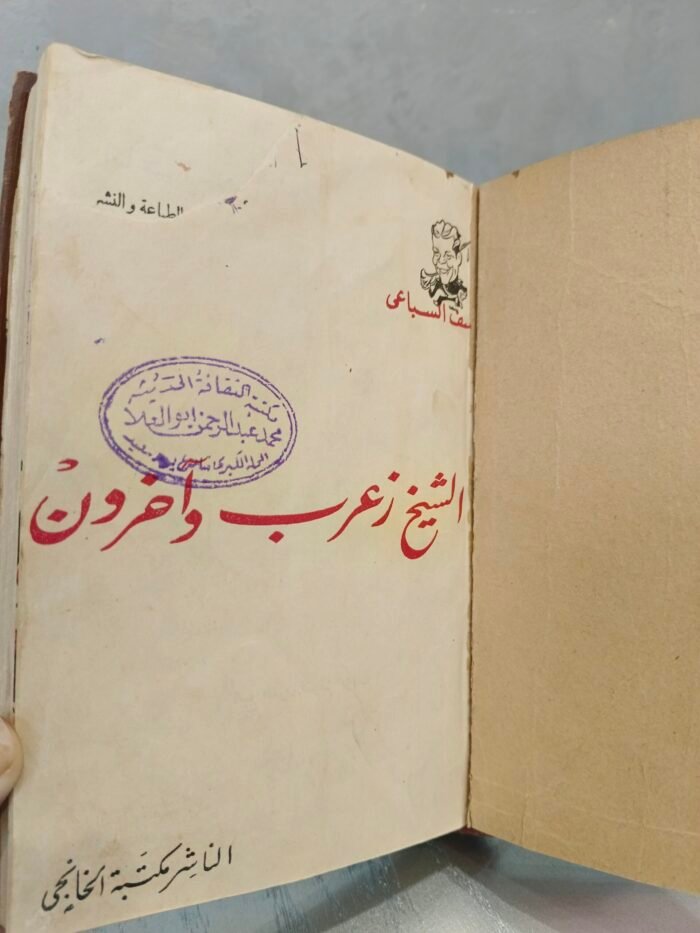 الطباعة والنشر
السباعى
مكتبة الثقافة الحديثة
محمد عبد الرحمن ابو العلا
المحلة الكبرى
الشيخ زعرب وآخرون
الناشر مكتبة الخانجى